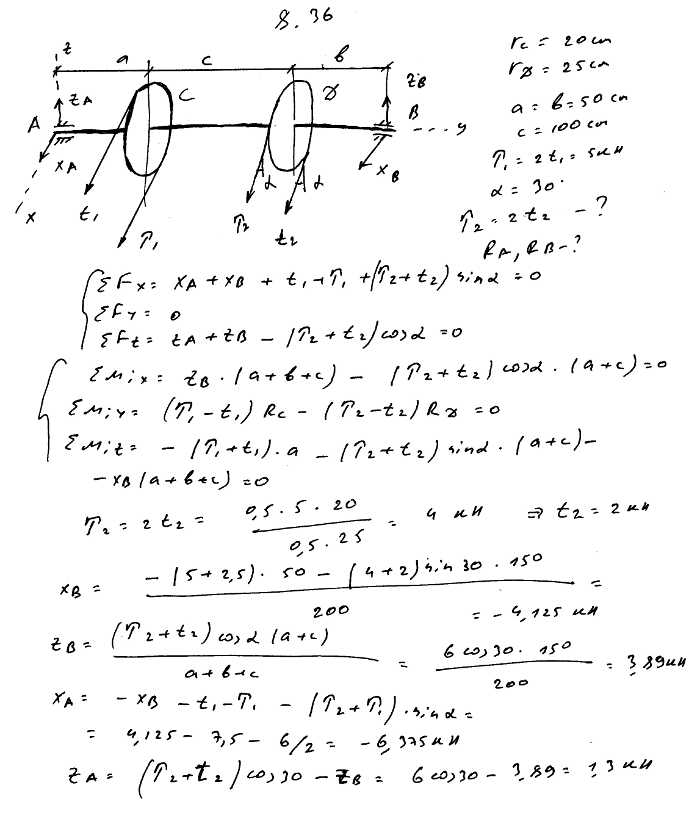 8.36
z a c b
zA C D zB
A B y
xA xB
x t₁ T₁ T₂ t₂ α α
rc = 20 cm
rD = 25 cm
a = b = 50 cm
c = 100 cm
T₁ = 2t₁ = 5кН
α = 30°
T₂ = 2t₂ - ?
RA, RB - ?
ΣFx = xA + xB + t₁ + T₁ + (T₂ + t₂) sinα = 0
ΣFy = 0
ΣFz = zA + zB - (T₂ + t₂) cosα = 0
ΣMix = zB · (a + b + c) - (T₂ + t₂) cosα · (a + c) = 0
ΣMiy = (T₁ - t₁) Rc - (T₂ - t₂) RD = 0
ΣMiz = - (T₁ + t₁) · a - (T₂ + t₂) sinα · (a + c) -
- xB (a + b + c) = 0
T₂ = 2t₂ = 0,5 · 5 · 20 / 0,5 · 25 = 4 кН ⇒ t₂ = 2 кН
xB = -(5 + 2,5) · 50 - (4 + 2) sin 30 · 150 / 200 =
= - 4,125 кН
zB = (T₂ + t₂) cosα (a + c) / a + b + c = 6 cos 30 · 150 / 200 = 3,89кН
xA = - xB - t₁ - T₁ - (T₂ + T₁) · sinα =
= 4,125 - 7,5 - 6/2 = - 6,375кН
zA = (T₂ + t₂) cos 30 - zB = 6 cos 30 - 3,89 = 1,3 кН